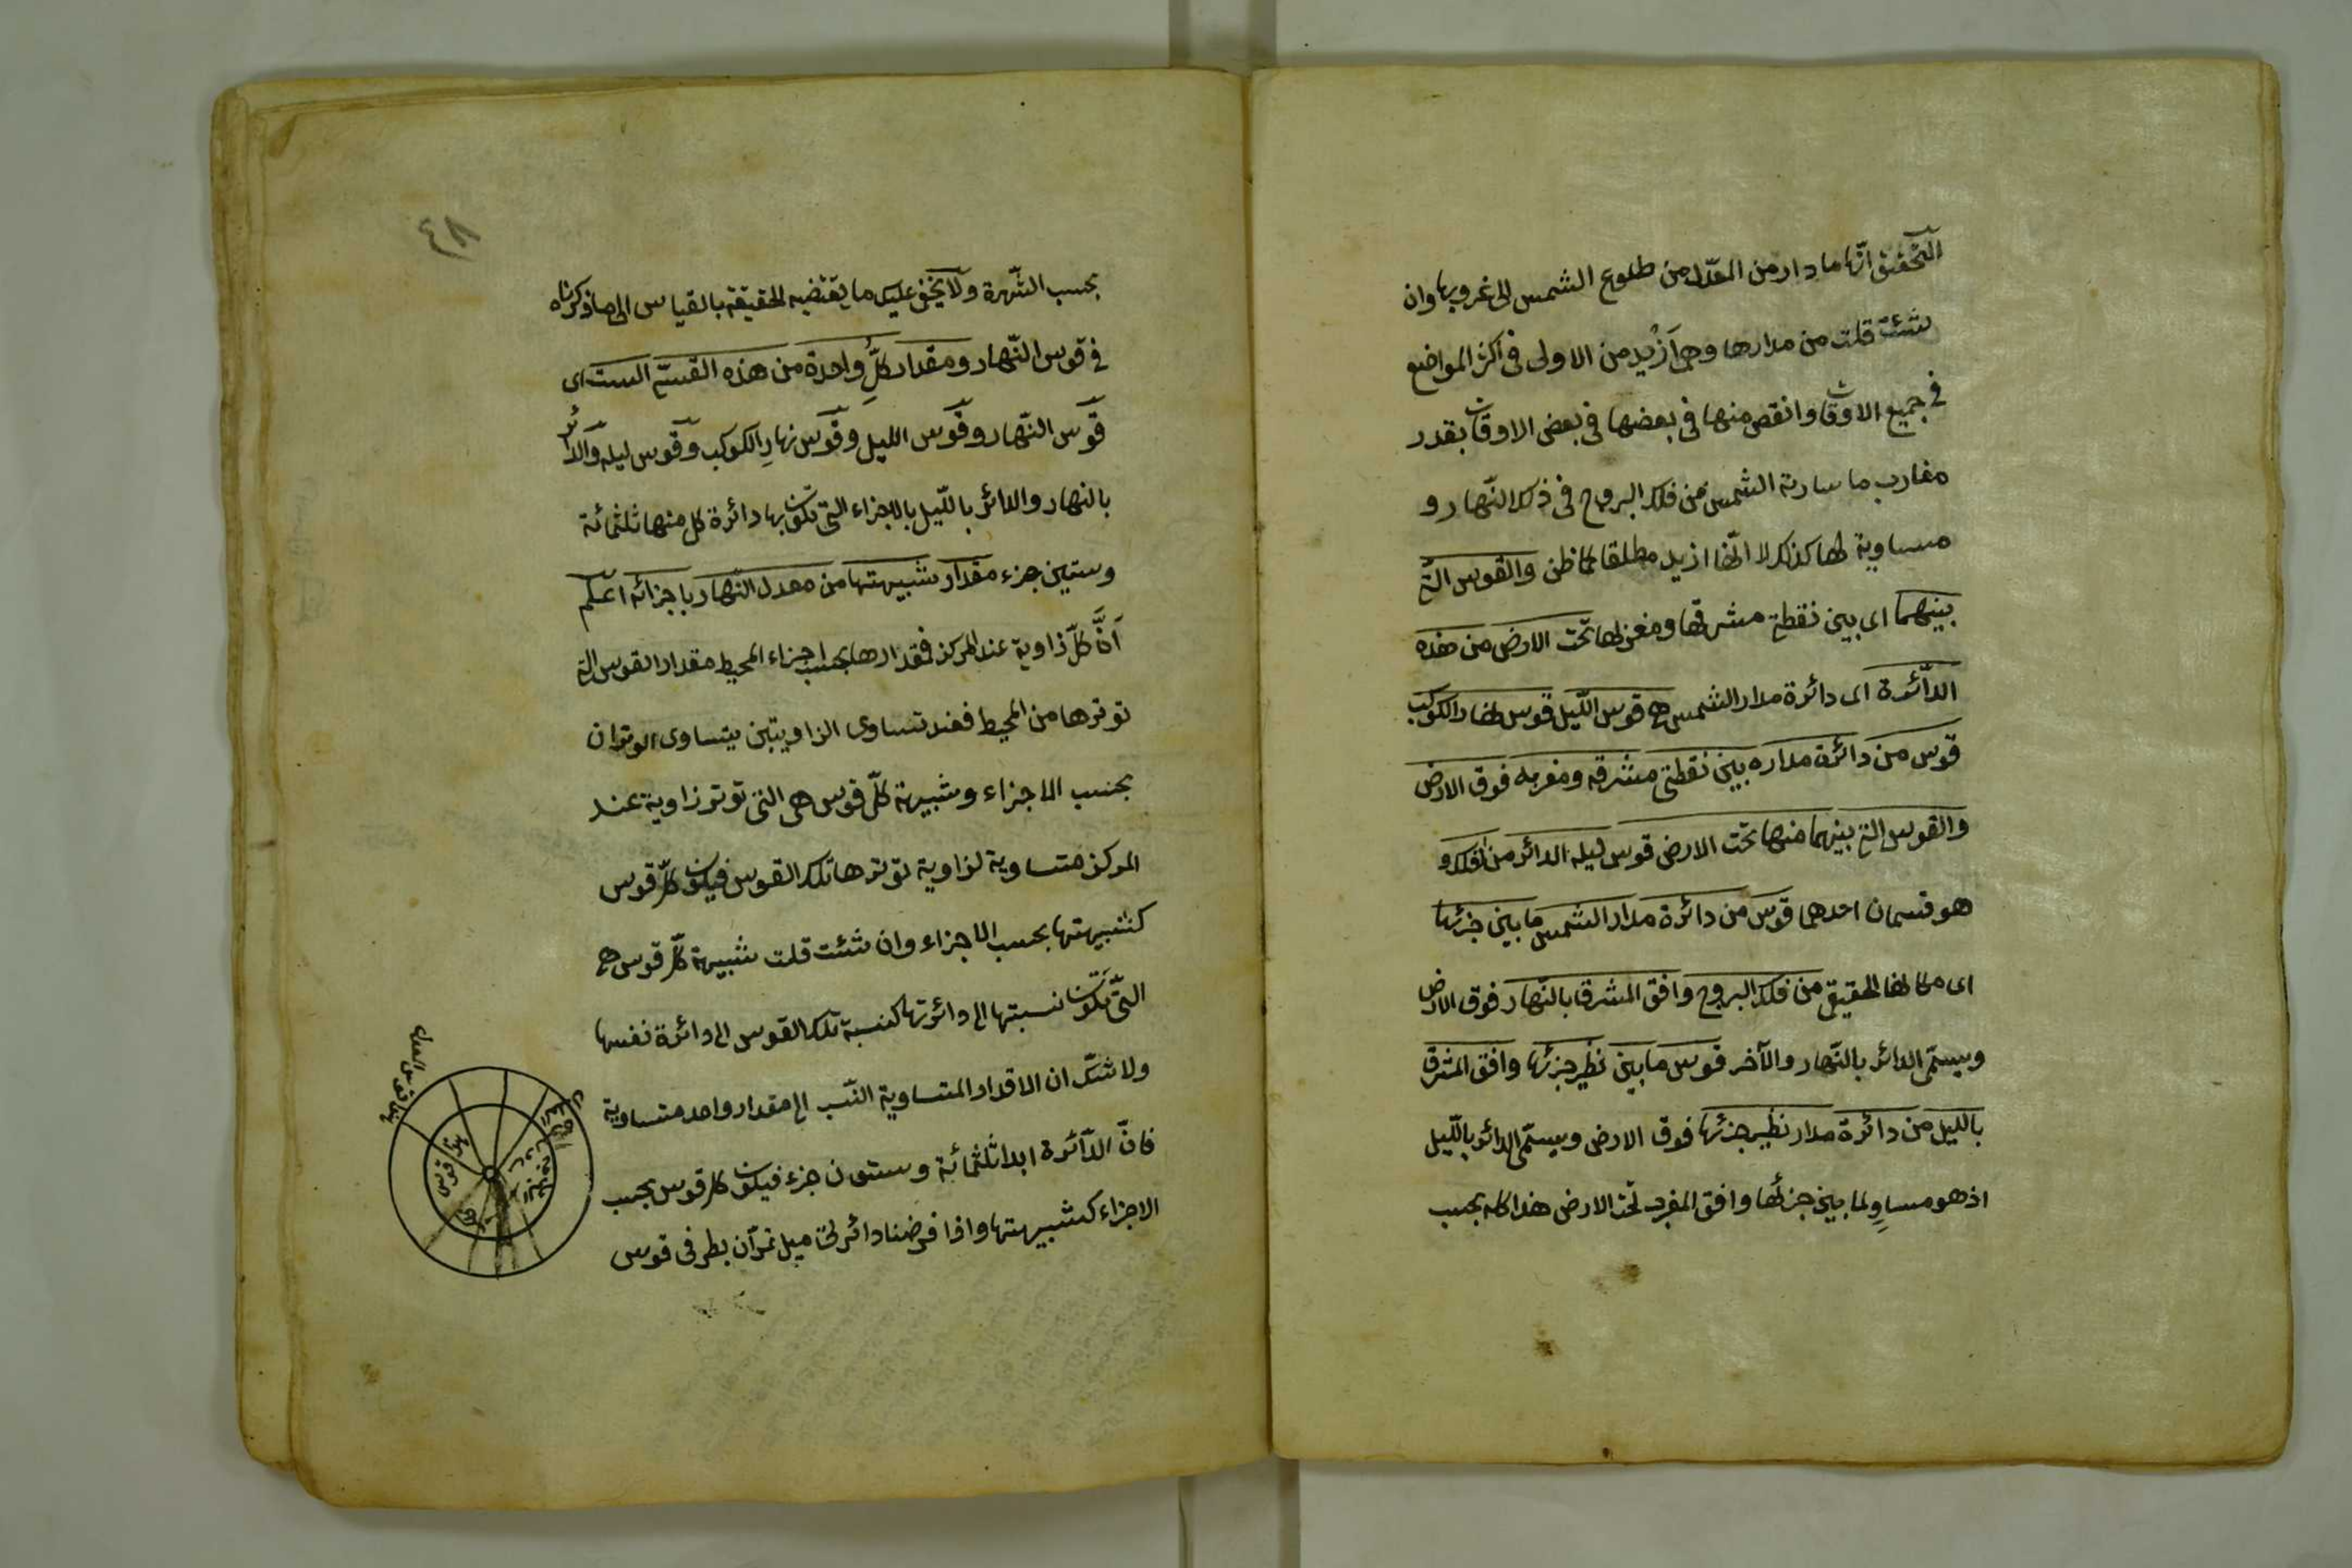 التحقيق انّها ما دار من المعدّل من طلوع الشمس الى غروبها وان
شئت قلت من مدارها وهى ازيد من الاولى فى اكثر المواضع
فى جميع الاوقات وانقص منها فى بعضها فى بعض الاوقات بقدر
مغارب ما سارته الشمس من فلك البروج فى ذلك النّهار و
مساوية لها كذلك لا انّها ازيد مطلقا كما ظن والقوس التى
بينهما اى بين نقطتى مشرقها ومغربها تحت الارض من هذه
الدّائرة اى دائرة مدار الشمس هى قوس اللّيل قوس نهار الكوكب
قوس من دائرة مداره بين نقطتى مشرقه ومغربه فوق الارض
والقوس التى بينهما منها تحت الارض قوس ليله الدائر من الفلك و
هو قسمان احدهما قوس من دائرة مدار الشمس ما بين جزئها
اى مكانها الحقيقى من فلك البروج وافق المشرق بالنّهار فوق الارض
ويسمّى الدائر بالنّهار والآخر قوس ما بين نظير جزئها وافق المشرق
بالليل من دائرة مدار نظير جزئها فوق الارض ويسمّى الدائر باللّيل
اذ هو مساوٍ لما بين جزئها وافق المغرب تحت الارض هذا كله بحسب
٤٨
بحسب الشّهرة ولا يخفى عليك ما يقتضيه الحقيقة بالقياس الى ما ذكرناه
فى قوس النّهار ومقدار كلّ واحدة من هذه القسىّ الست اى
قوس النّهار وقوس الليل وقوس نهارِ الكوكب وقوس ليله والدائر
بالنهار والدائر باللّيل بالاجزاء التى تكون بها دائرة كل منها ثلثمائة
وستين جزء مقدار شبيهتها من معدل النّهار باجزائه اعلم
انّ كلّ زاوية عند المركز فمقدارها بحسب اجزاء المحيط مقدار القوس التى
توترها من المحيط فعند تساوى الزاويتين يتساوى الوتران
بحسب الاجزاء وشبيهة كلّ قوس هى التى توتر زاوية عند
المركز متساوية لزاوية توترها تلك القوس فيكون كلّ قوس
كشبيهتها بحسب الاجزاء وان شئت قلت شبيهة كلّ قوس هى
التى تكون نسبتها الى دائرتها كنسبة تلك القوس الى دائرة نفسها
ولا شكّ ان الاقدار المتساوية النّسب الى مقدار واحد متساوية
فانّ الدّائرة ابدا ثلثمائة وستون جزء فيكون كل قوس بحسب
الاجزاء كشبيهتها واذا فرضنا دائرتى ميل تمرّان بطرفى قوس